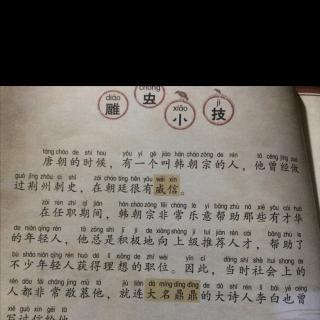 diāo chóng xiǎo jì
雕虫小技
táng cháo de shí hou yǒu yí gè jiào hán cháo zōng de rén tā céng jīng zuò
唐朝的时候，有一个叫韩朝宗的人，他曾经做
guò jīng zhōu cì shǐ zài cháo tíng hěn yǒu wēi xìn
过荆州刺史，在朝廷很有威信。
zài rèn zhí qī jiān hán cháo zōng fēi cháng lè yì bāng zhù nà xiē yǒu cái huá
在任职期间，韩朝宗非常乐意帮助那些有才华
de nián qīng rén tā zǒng shì jī jí de xiàng shàng jí tuī jiàn rén cái bāng zhù le
的年轻人，他总是积极地向上级推荐人才，帮助了
bù shǎo nián qīng rén huò dé lǐ xiǎng de zhí wèi yīn cǐ dāng shí shè huì shang de
不少年轻人获得理想的职位。因此，当时社会上的
rén dōu fēi cháng jìng mù tā jiù lián dà míng dǐng dǐng de dà shī rén lǐ bái yě céng
人都非常敬慕他，就连大名鼎鼎的大诗人李白也曾
xiě guò xìn gěi tā
写过信给他